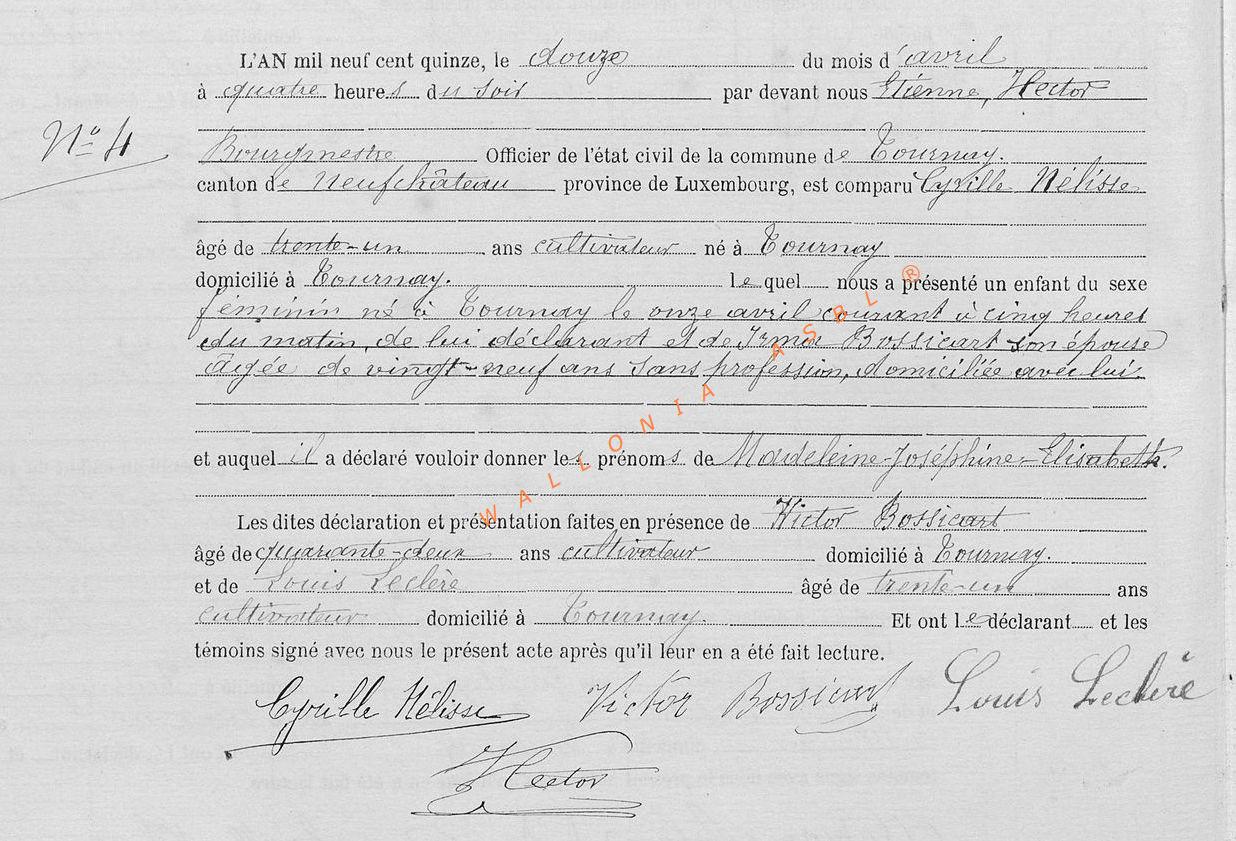 L'AN mil neuf cent quinze, le douze du mois d'avril
à quatre heures du soir par devant nous Etienne, Hector
Nº 4
Bourgmestre Officier de l'état civil de la commune de Tournay.
canton de Neufchâteau province de Luxembourg, est comparu Cyrille Nélisse
âgé de trente-un ans cultivateur né à Tournay
domicilié à Tournay. Le quel nous a présenté un enfant du sexe
féminin né à Tournay le onze avril courant à cinq heures
du matin, de lui déclarant et de Irma Bossicart son épouse
âgée de vingt-neuf ans sans profession, domiciliée avec lui
et auquel il a déclaré vouloir donner les prénoms de Madeleine-Joséphine-Elisabeth.
Les dites déclaration et présentation faites en présence de Victor Bossicart
âgé de quarante-deux ans cultivateur domicilié à Tournay.
et de Louis Leclère âgé de trente-un ans
cultivateur domicilié à Tournay. Et ont le déclarant et les
témoins signé avec nous le présent acte après qu'il leur en a été fait lecture.
Cyrille Nélisse Victor Bossicart Louis Leclère
Hector
WALLONIA ASBL ®